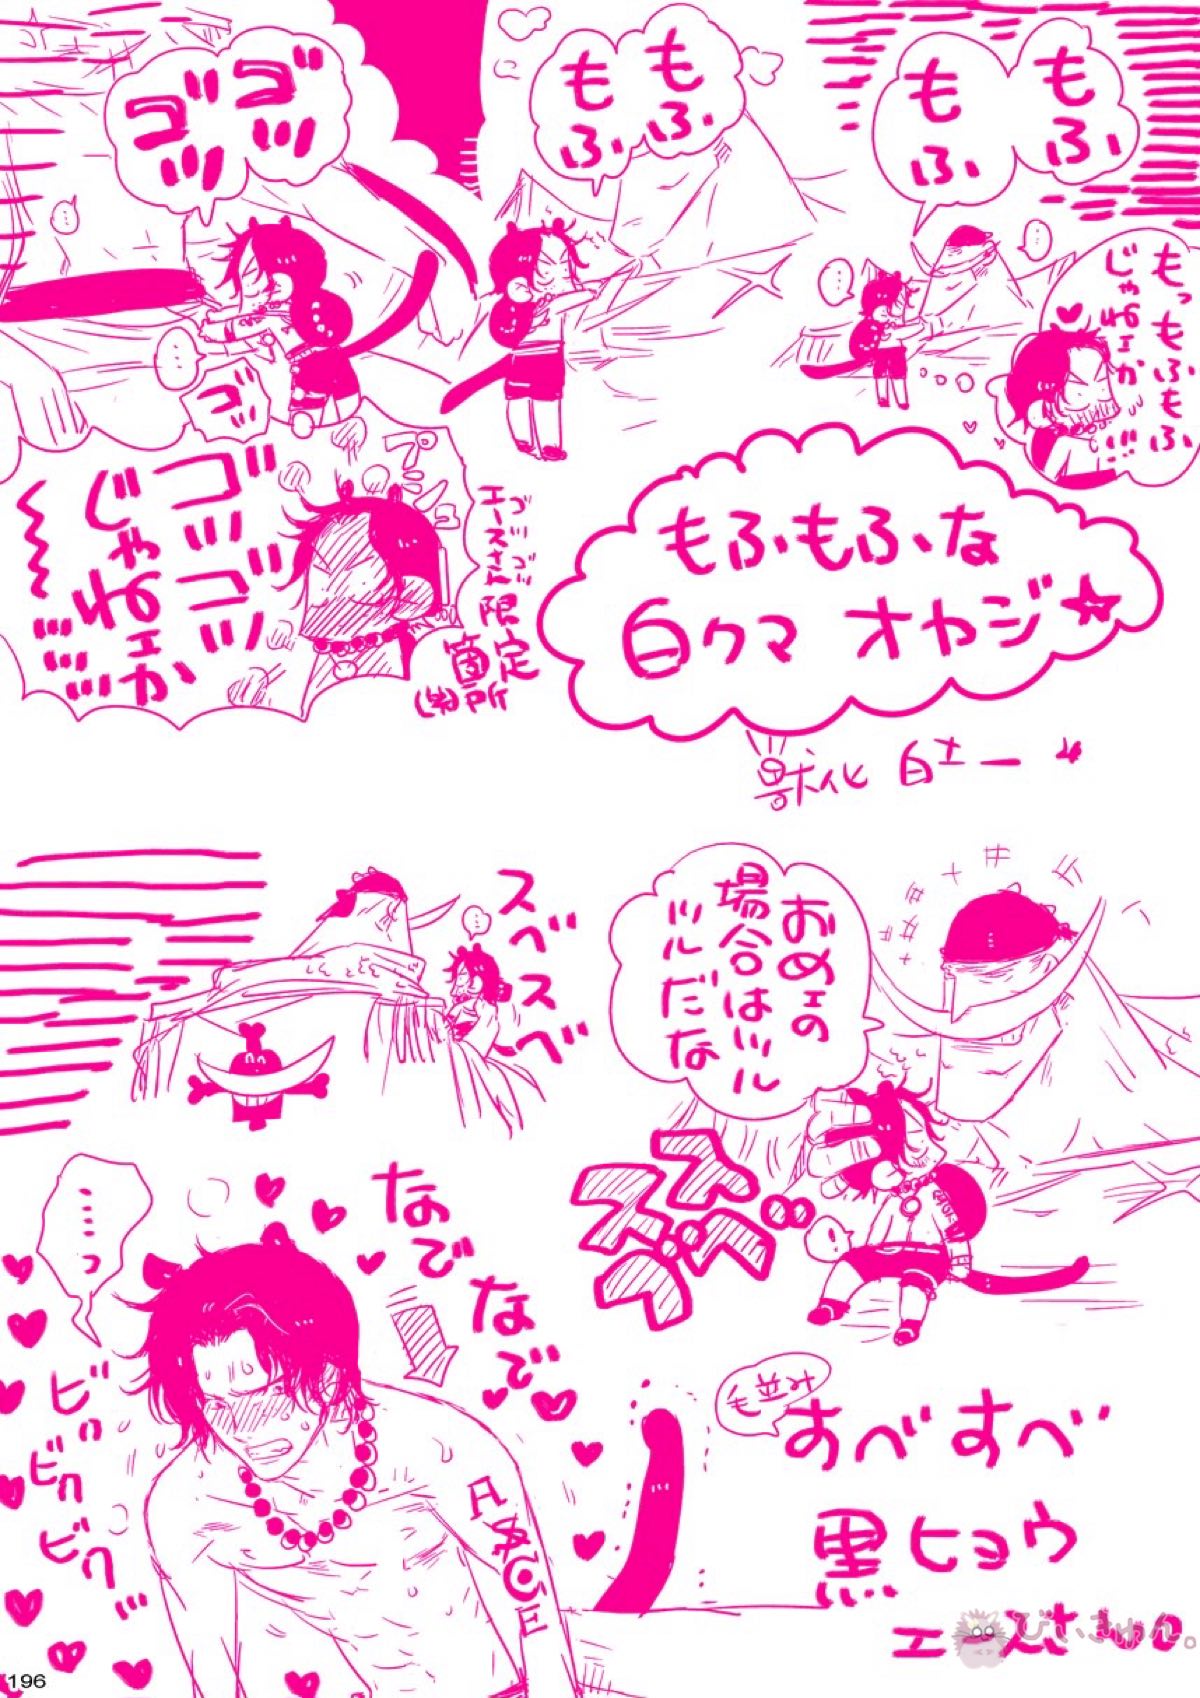 もふ
もふ
…
…
もっもふもふ
じゃねェか!!!
もふ
もふ
ゴツ
ゴツ
…
…
ゴツ
プニ
ゴツゴツ
じゃねェか
!!!!
ゴツゴツ
エースさん限定
箇所
(笑)
もふもふな
白クマ オヤジ☆
獣化 白ェー
おめェの
場合はツル
ツルだな
スベスベ
…
スベスベ
!
なでなで
……っ
ビクビクビクッ
ASCE
毛並み
すべすべ
黒ヒョウ
エースさん
びいきゅん。
196